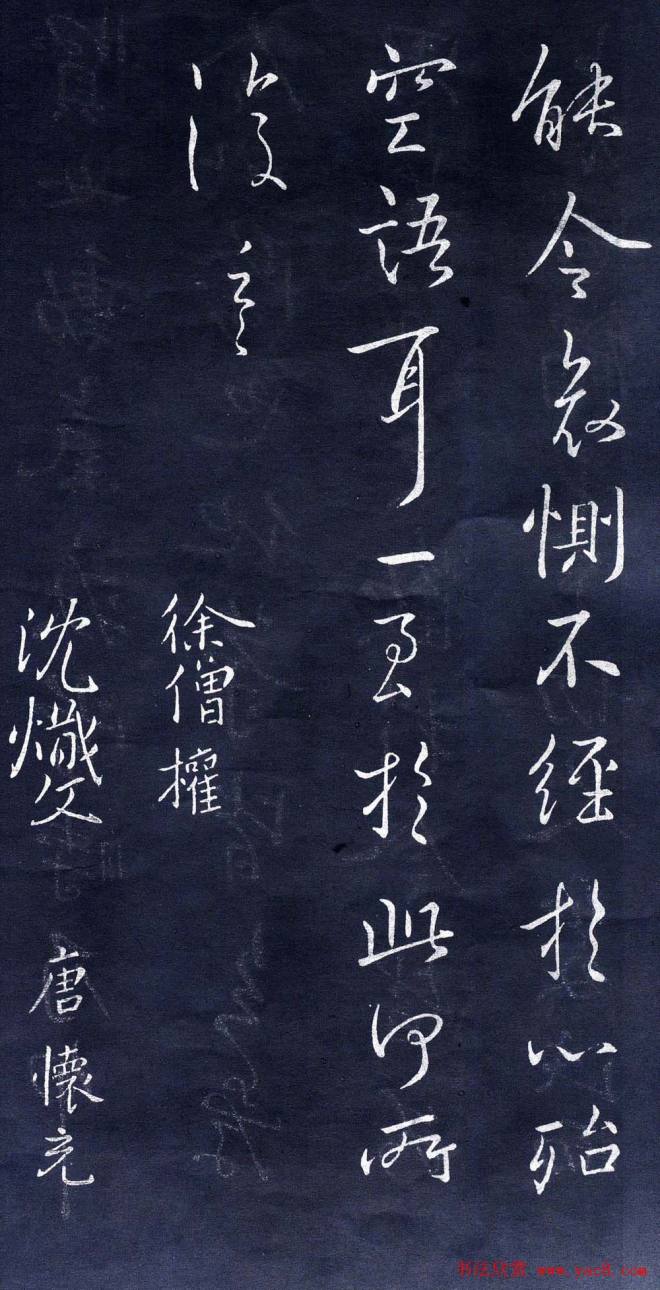 能令哀惻不經於心殆
空語耳一至於此何所
復言
徐僧權
沈熾文 唐懷充
书法欣赏 www.yac8.com